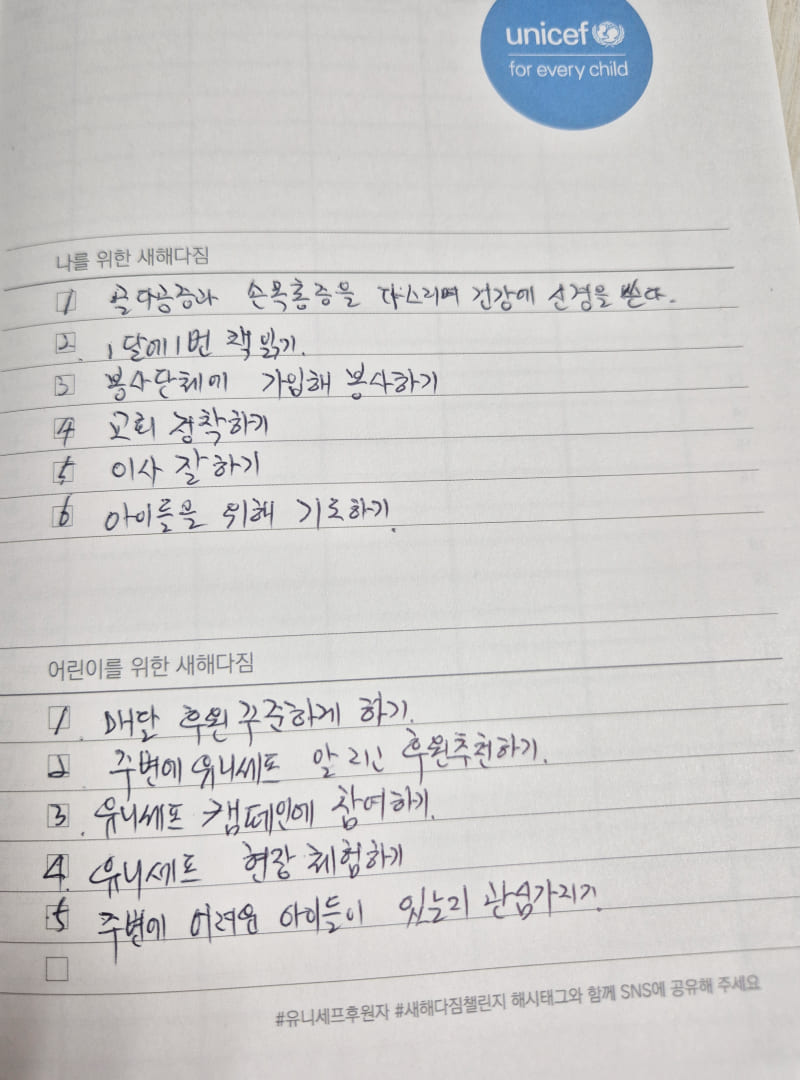 unicef
for every child
나를 위한 새해다짐
1 골다공증과 손목통증을 다스리며 건강에 신경을 쓴다.
2. 1달에 1번 책 읽기.
3 봉사단체에 가입해 봉사하기
4 교회 정착하기
5 이사 잘하기
6 아이들을 위해 기도하기.
어린이를 위한 새해다짐
1. 매달 후원 꾸준하게 하기.
2. 주변에 유니세프 알리고 후원추천하기.
3. 유니세프 캠페인에 참여하기.
4. 유니세프 현장 체험하기
5 주변에 어려운 아이들이 있는지 관심가지기.
#유니세프후원자 #새해다짐챌린지 해시태그와 함께 SNS에 공유해 주세요